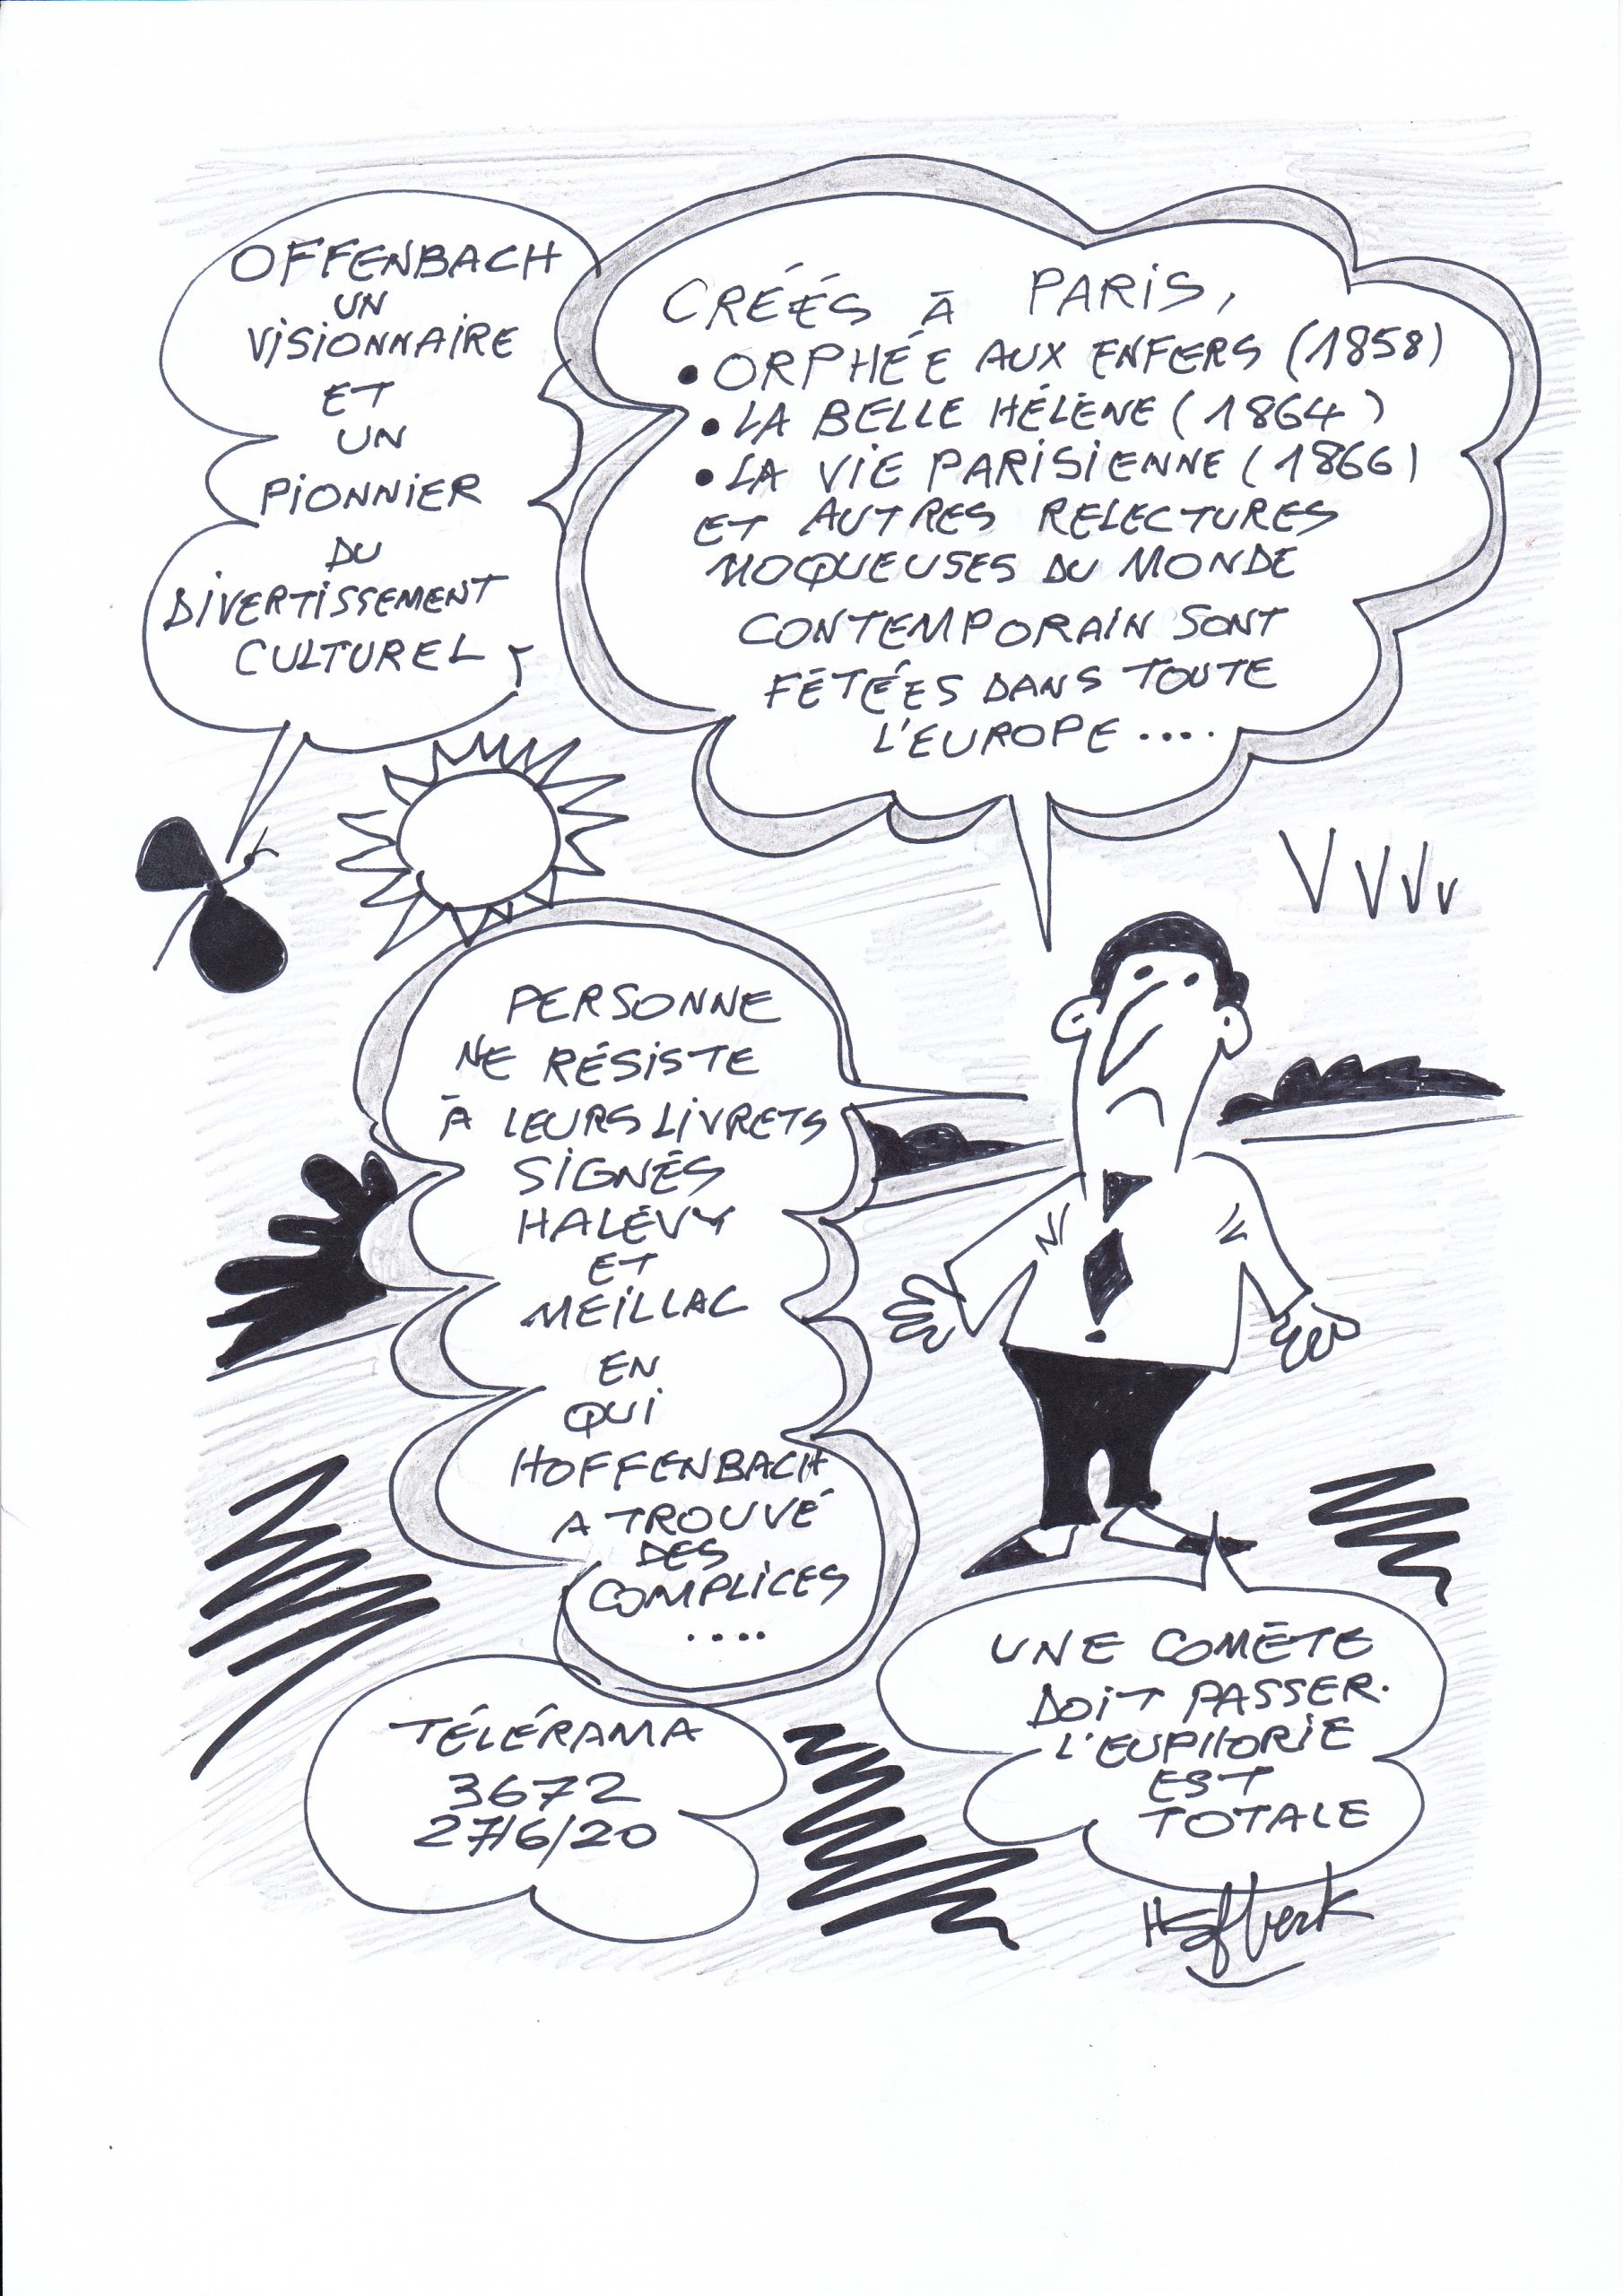 OFFENBACH
UN
VISIONNAIRE
ET
UN
PIONNIER
DU
DIVERTISSEMENT
CULTUREL
CRÉÉS À PARIS,
• ORPHÉE AUX ENFERS (1858)
• LA BELLE HÉLÈNE (1864)
• LA VIE PARISIENNE (1866)
ET AUTRES RELECTURES
MOQUEUSES DU MONDE
CONTEMPORAIN SONT
FÊTÉES DANS TOUTE
L'EUROPE ....
PERSONNE
NE RÉSISTE
À LEURS LIVRETS
SIGNÉS
HALÉVY
ET
MEILLAC
EN
QUI
HOFFENBACH
A TROUVÉ
DES
COMPLICES
....
UNE COMÈTE
DOIT PASSER.
L'EUPHORIE
EST
TOTALE
TÉLÉRAMA
3672
27/6/20